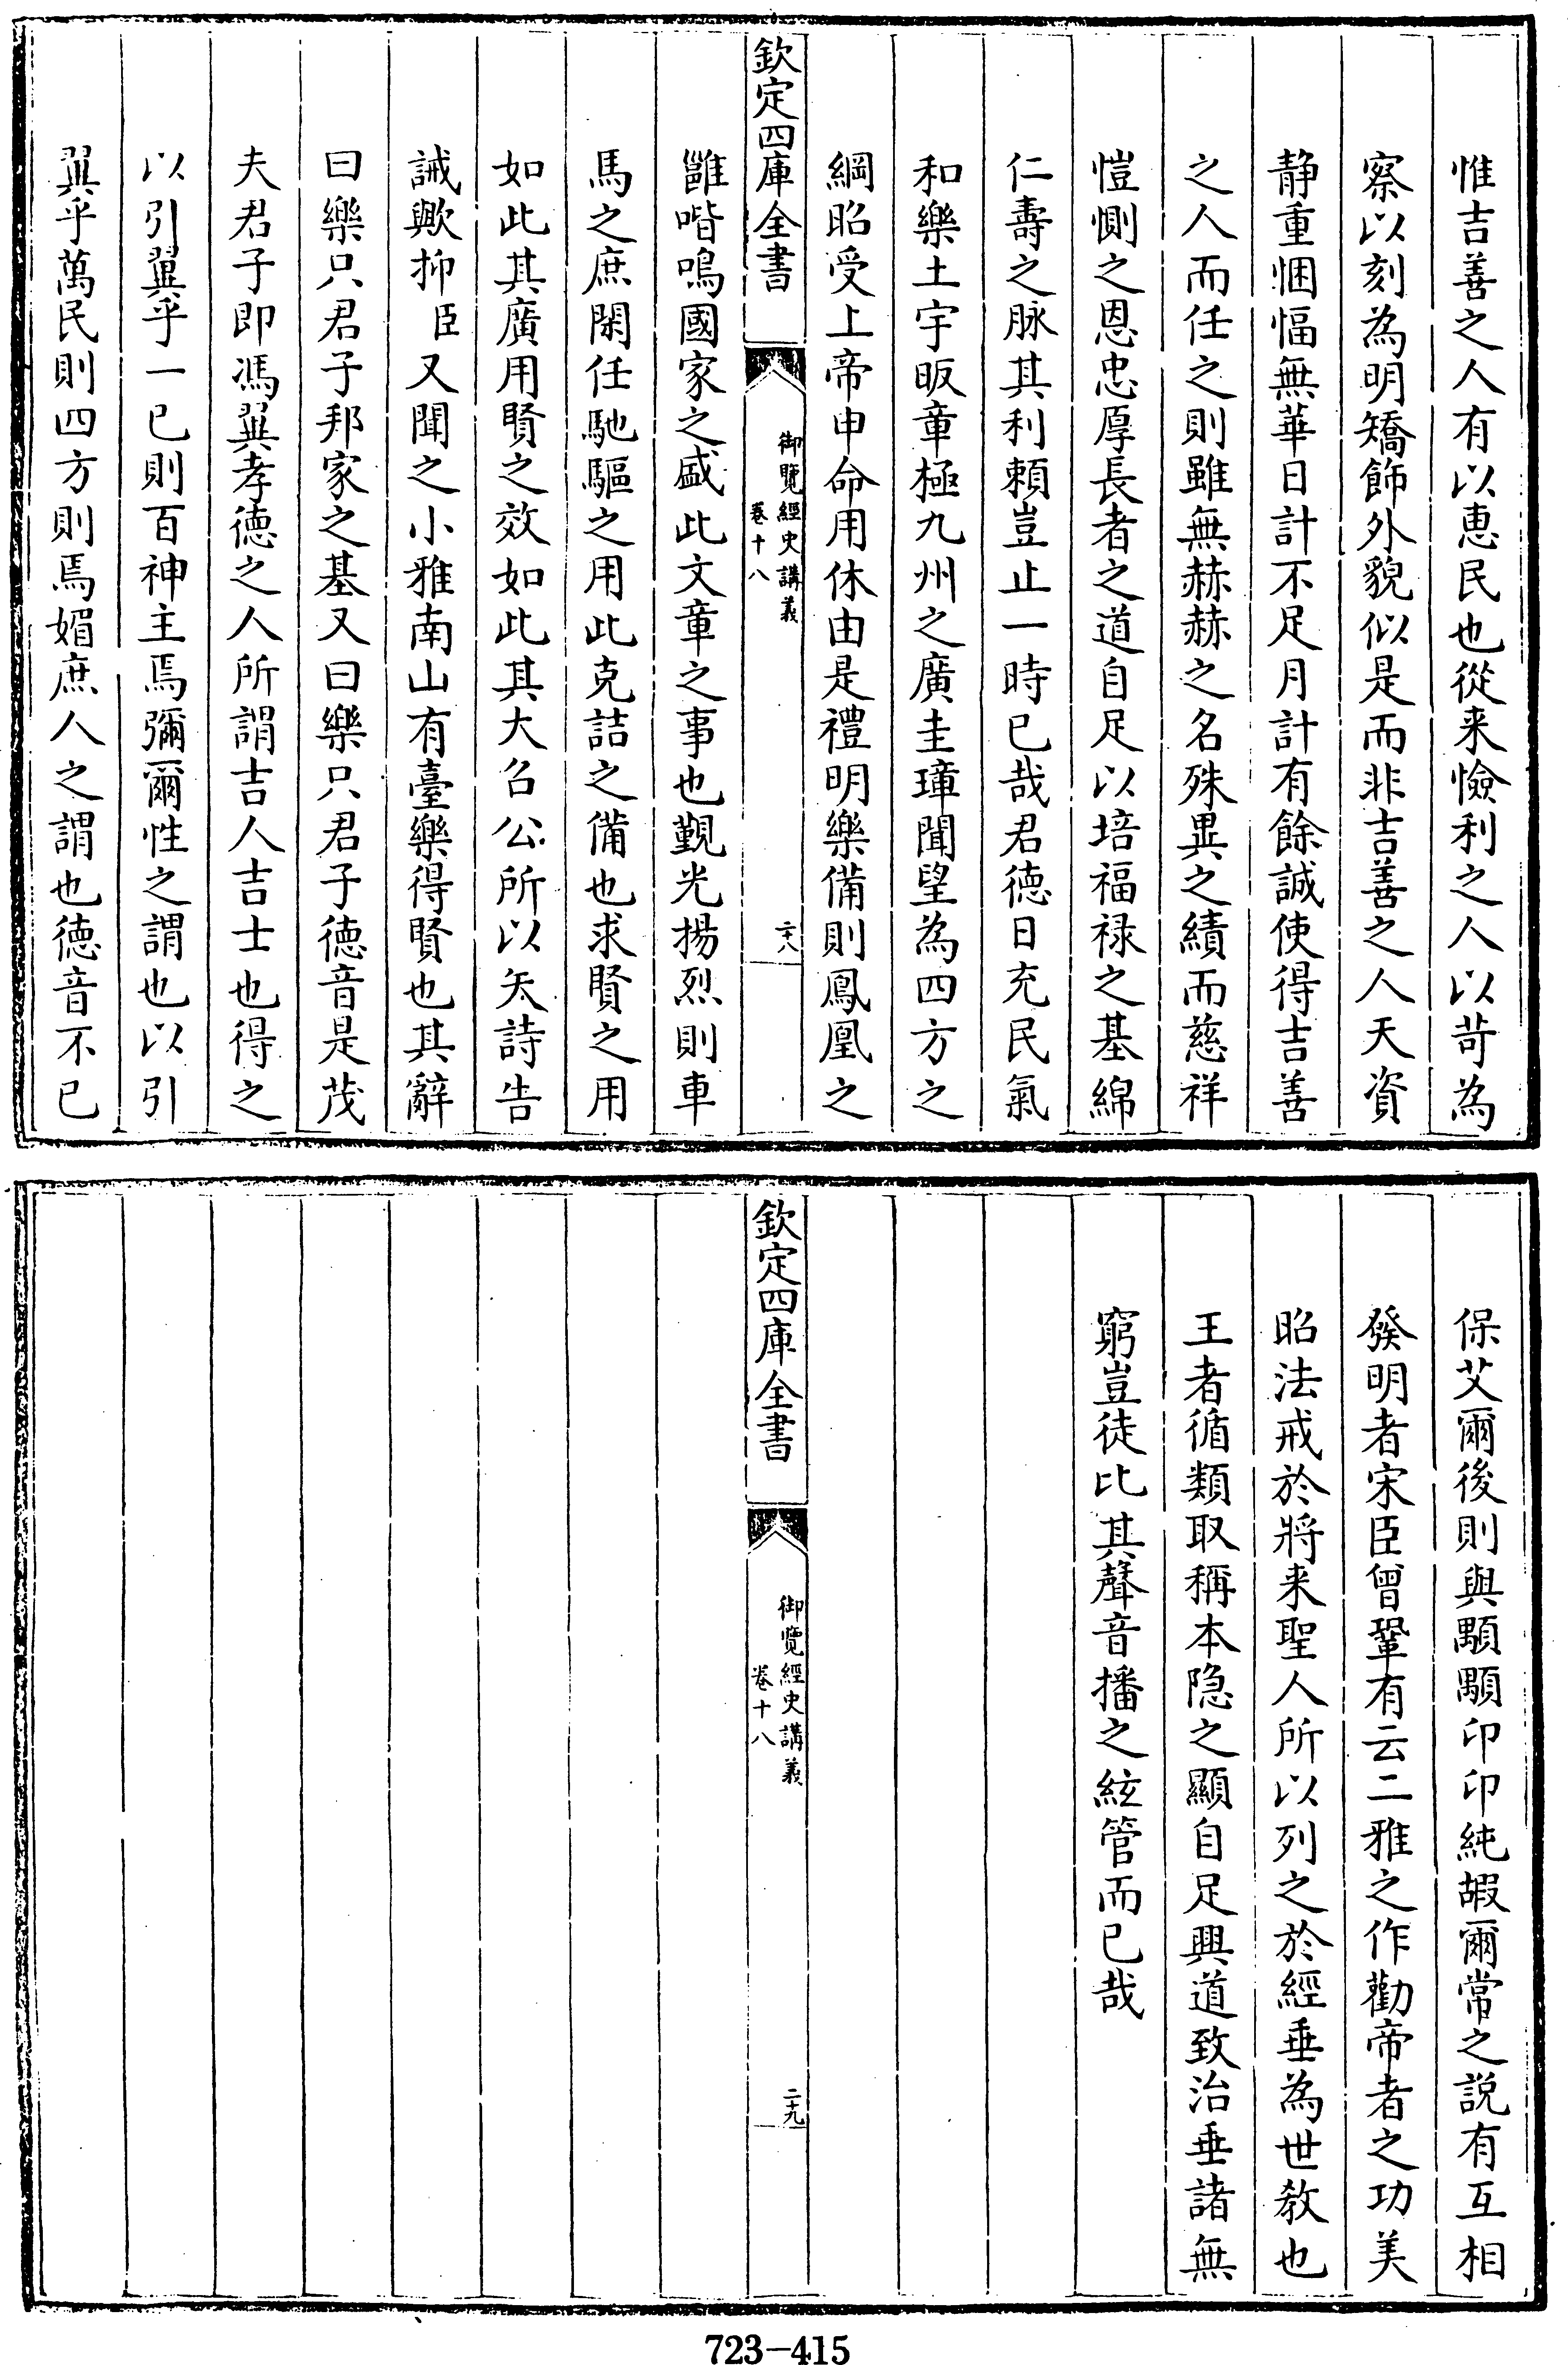 惟吉善之人有以恵民也從来憸利之人以苛為
察以刻為明矯飾外貌似是而非吉善之人天資
静重悃愊無華日計不足月計有餘誠使得吉善
之人而任之則雖無赫赫之名殊異之績而慈祥
愷惻之恩忠厚長者之道自足以培福禄之基綿
仁壽之脉其利頼豈止一時已哉君徳日充民氣
和樂土宇昄章極九州之廣圭璋聞望為四方之
綱昭受上帝申命用休由是禮明樂備則鳳凰之
欽定四庫全書
御覽經史講義
卷十八
二十八
雝喈鳴國家之盛此文章之事也觀光揚烈則車
馬之庶閑任馳驅之用此克詰之備也求賢之用
如此其廣用賢之效如此其大召公所以矢詩告
誡歟抑臣又聞之小雅南山有臺樂得賢也其辭
曰樂只君子邦家之基又曰樂只君子徳音是茂
夫君子即馮翼孝徳之人所謂吉人吉士也得之
以引翼乎一已則百神主焉彌爾性之謂也以引
翼乎萬民則四方則焉媚庶人之謂也徳音不已
保艾爾後則與顒顒卬卬純嘏爾常之說有互相
發明者宋臣曾鞏有云二雅之作勸帝者之功美
昭法戒於將来聖人所以列之於經垂為世教也
王者循類取稱本隐之顯自足興道致治垂諸無
窮豈徒比其聲音播之絃管而已哉
欽定四庫全書
御覽經史講義
卷十八
二十九
723-415